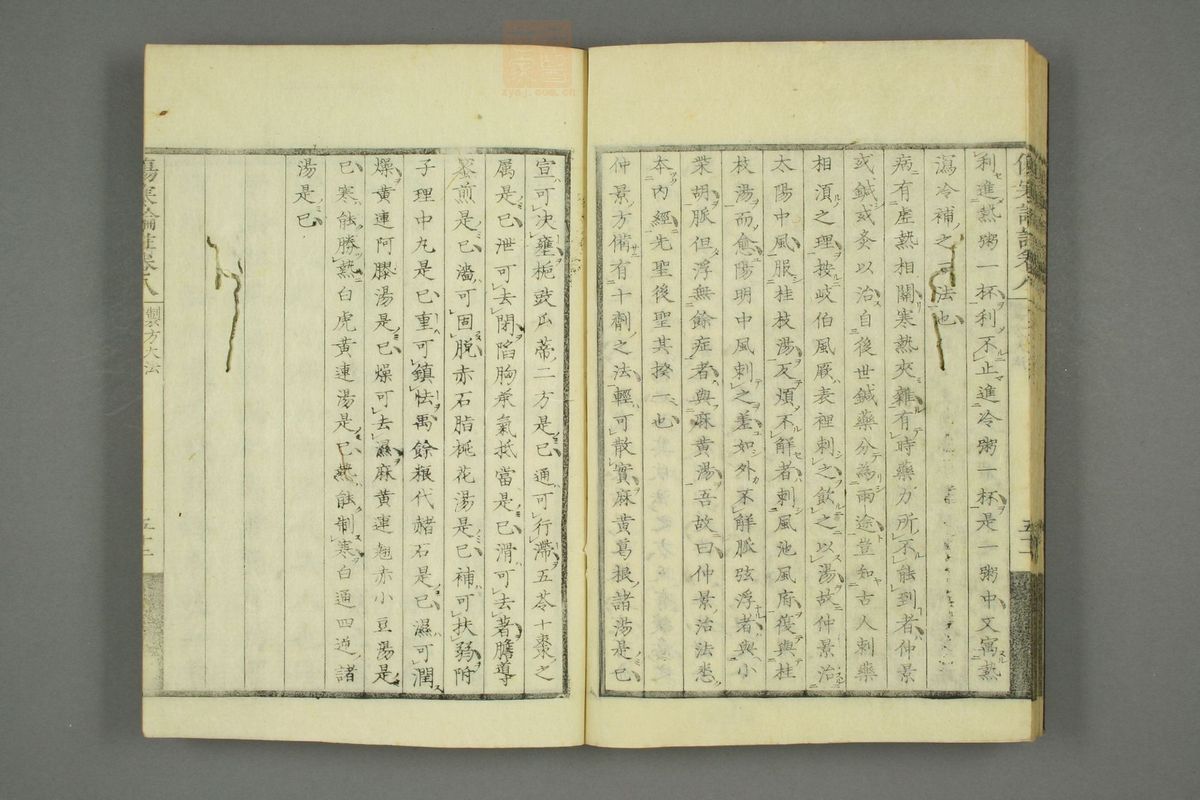 利進熱粥一杯利不止進冷粥一杯是一粥中又寓熱
瀉冷補之法也
病有虛熱相關寒熱夾雜有時藥力所不能到者仲景
或鍼或灸以治自後世鍼藥分為兩途豈知古人刺藥
相須之理按岐伯風厥表裡刺之飲之以湯故仲景治
太陽中風服桂枝湯反煩不解者刺風池風府復與桂
枝湯而愈陽明中風刺之差如外不解脈弦浮者與小
柴胡脈但浮無餘症者與麻黃湯吾故曰仲景治法悉
本內經先聖後聖其揆一也
仲景方備有十劑之法輕可散實麻黃葛根諸湯是已
宣可决壅梔豉瓜蒂二方是已通可行滯五苓十棗之
属是已泄可去閉陷胸承氣抵當是已滑可去著膽導
蜜煎是已濇可固脫赤石脂桃花湯是已補可扶弱附
子理中丸是已重可鎮怯禹餘粮代赭石是已濕可潤
燥黃連阿膠湯是已燥可去濕麻黃連翹赤小豆湯是
已寒能勝熱白虎黃連湯是已熱能制寒白通四逆諸
湯是已
傷寒論註卷八
製方大法
五十二